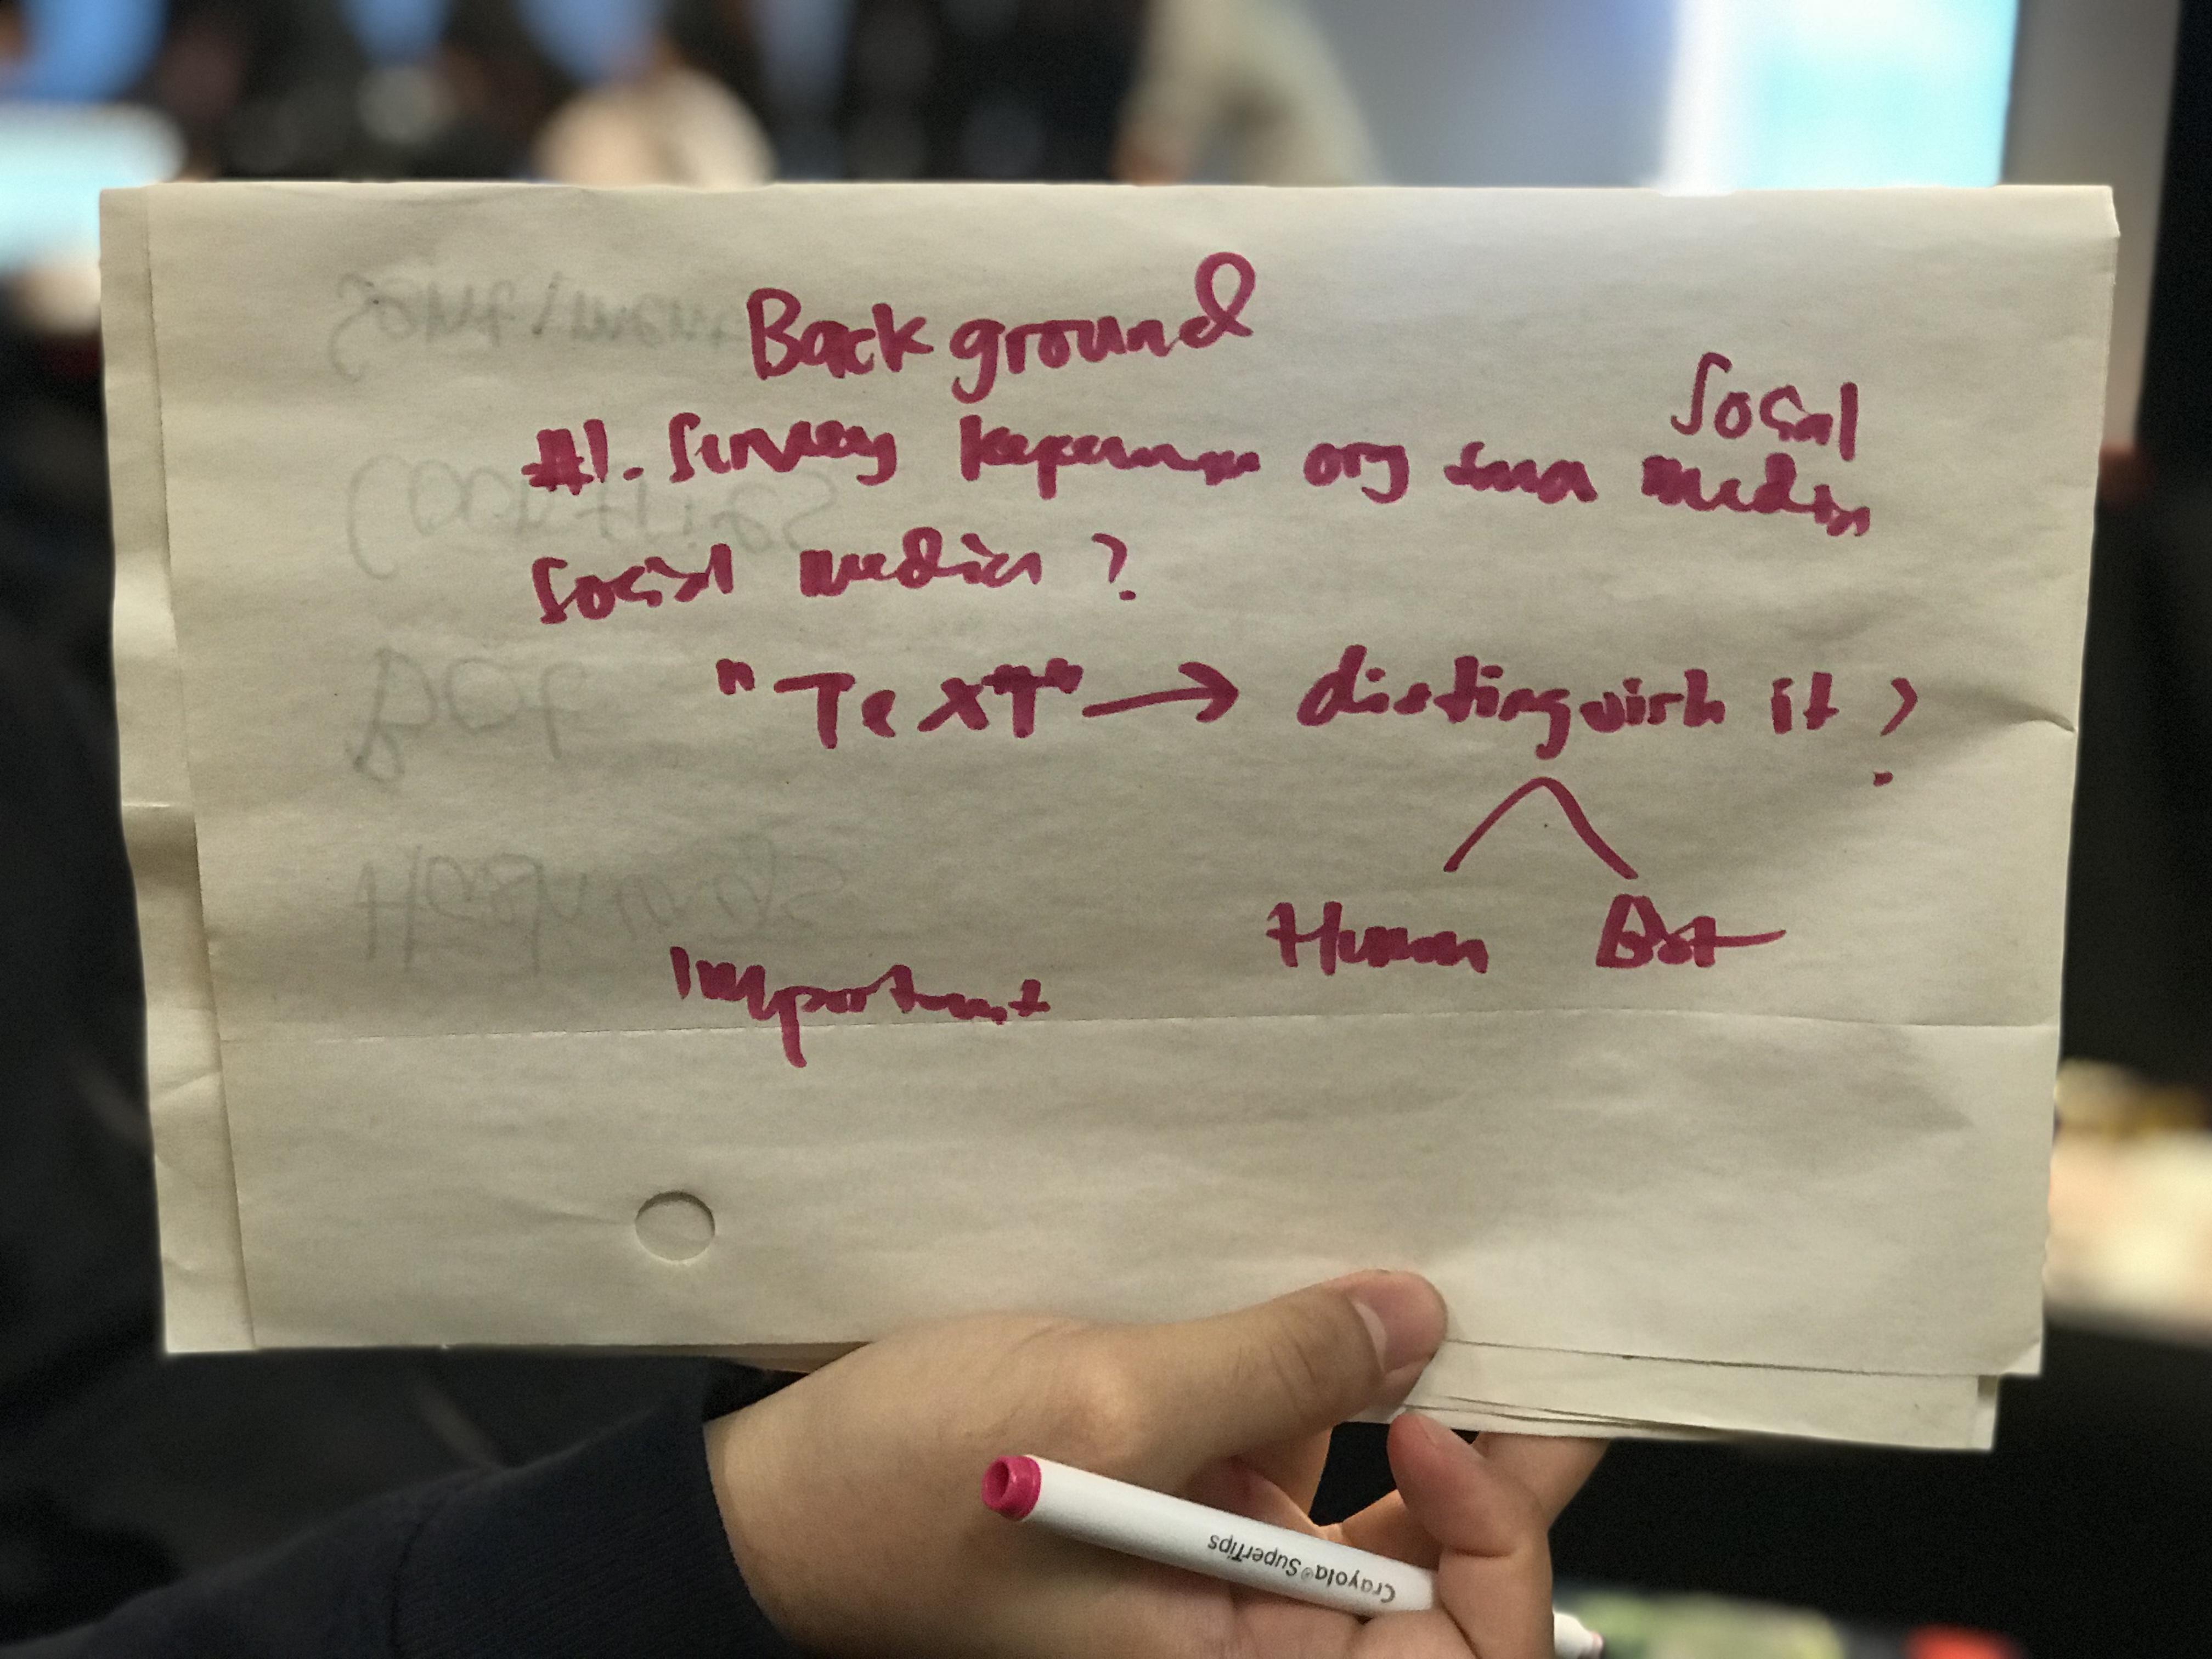 Background
Social
#1. Survey org sama media
Social media ?
"TexT" → distinguish it ?
Human Bot
Important
Crayola® SuperTips